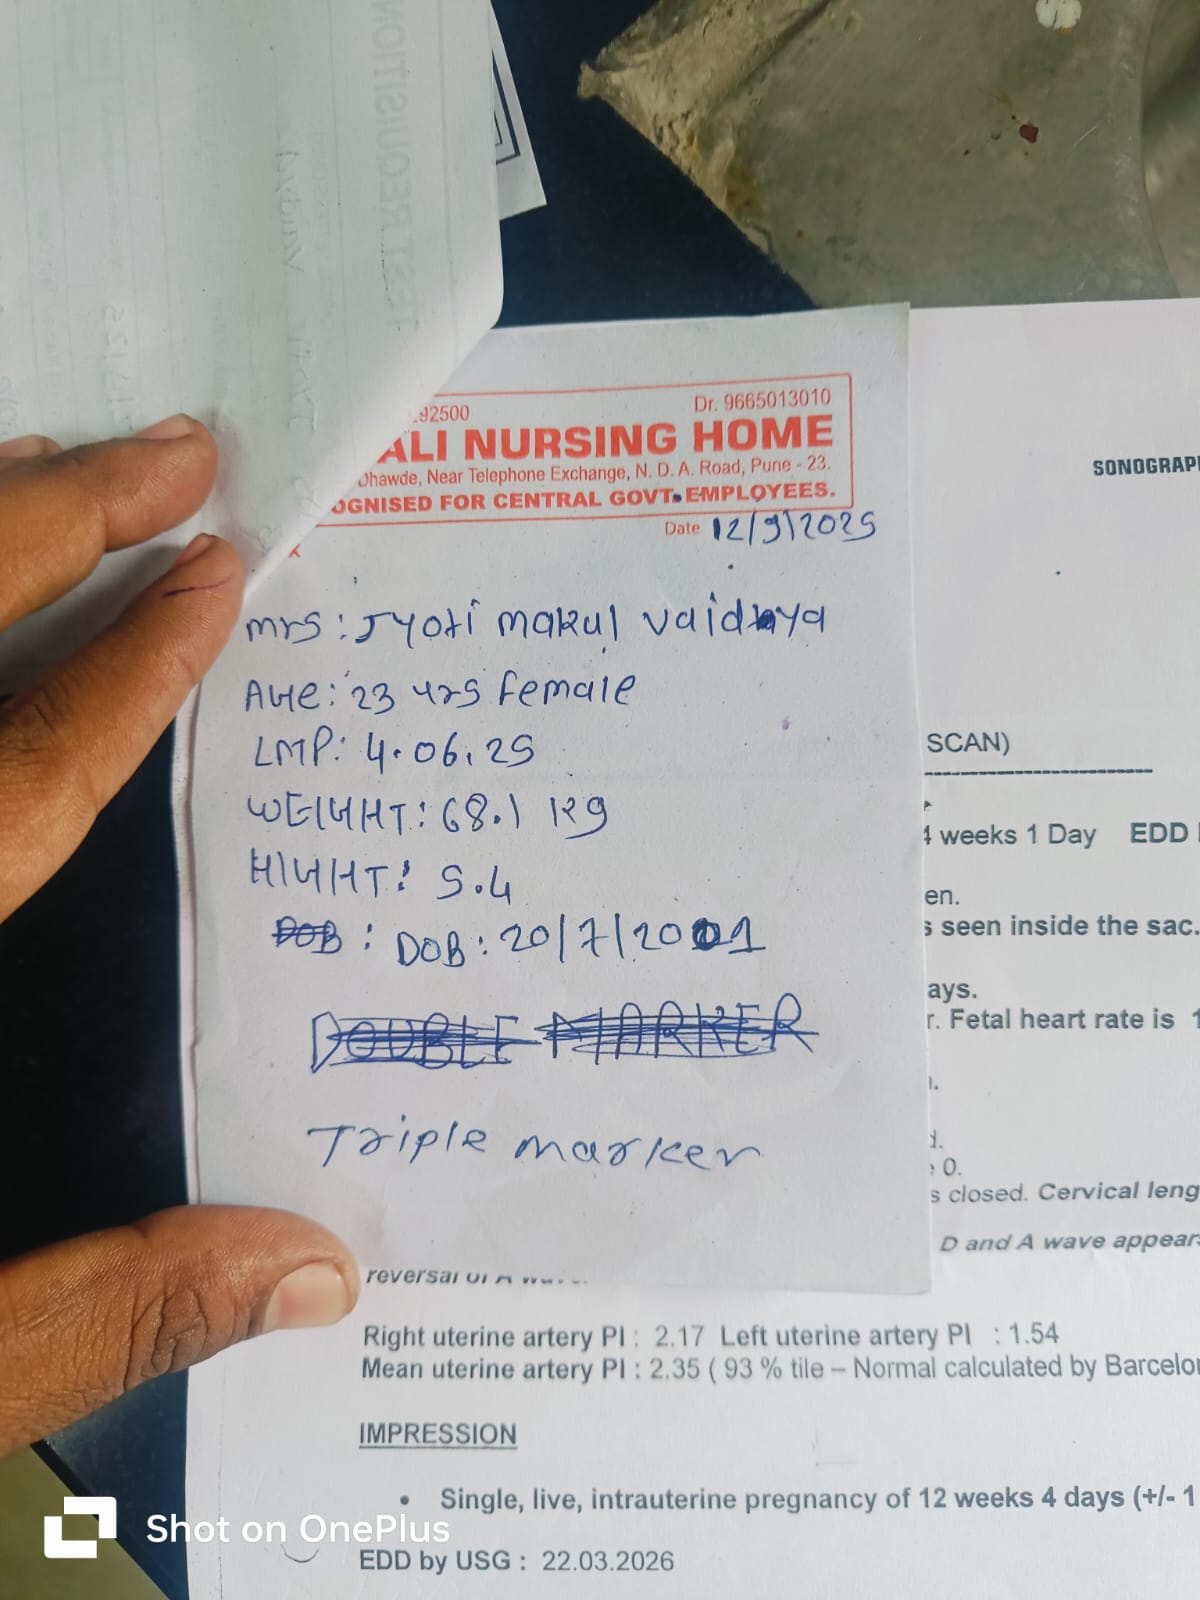 TEST REQUISITION
292500 Dr. 9665013010
ALI NURSING HOME
Dhawde, Near Telephone Exchange, N. D. A. Road, Pune - 23.
OGNISED FOR CENTRAL GOVT. EMPLOYEES.
Date 12/9/2025
Mrs : Jyoti makul vaidya
AGe: 23 yrs female
LMP: 4.06.25
WEIGHT: 68.1 kg
HIGHT: 5.4
DOB : DOB : 20/7/2001
DOUBLE MARKER
Triple marker
SONOGRAP
SCAN)
4 weeks 1 Day EDD
en.
s seen inside the sac.
ays.
r. Fetal heart rate is 1
d.
0.
s closed. Cervical leng
D and A wave appear
reversal of A
Right uterine artery PI : 2.17 Left uterine artery PI : 1.54
Mean uterine artery PI : 2.35 ( 93 % tile – Normal calculated by Barcelo
IMPRESSION
• Single, live, intrauterine pregnancy of 12 weeks 4 days (+/- 1
EDD by USG : 22.03.2026
Shot on OnePlus